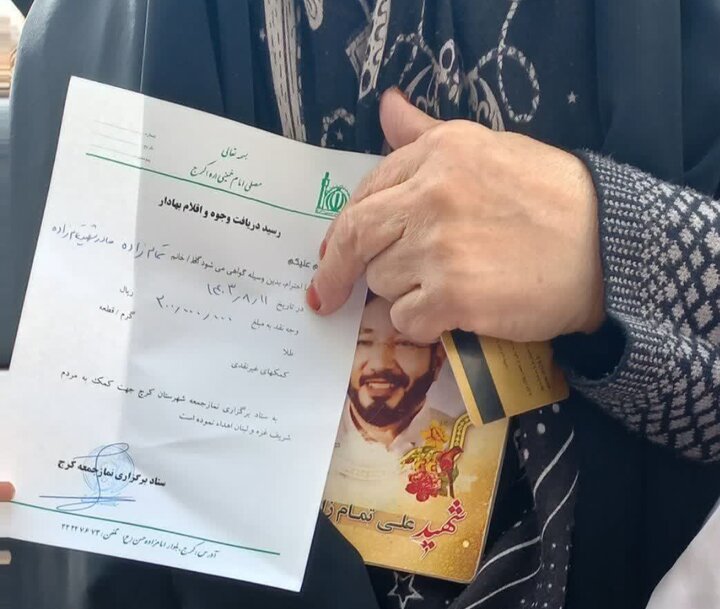 بسمه تعالی
مصلی امام خمینی (ره) کرج
شماره
تاریخ
رسید دریافت وجوه و اقلام بهادار
علیکم
احترام، بدین وسیله گواهی می شود آقا/خانم تمام زاده مادر شهید تمام زاده
در تاریخ ۱۴۰۳/۸/۱۱
وجه نقد به مبلغ ۳۰۰/۰۰۰/۰۰۰ ریال
طلا گرم/قطعه
کمکهای غیرنقدی
به ستاد برگزاری نمازجمعه شهرستان کرج جهت کمک به مردم
شریف غزه و لبنان اهداء نموده است
ستاد برگزاری نمازجمعه کرج
آدرس: کرج، بلوار امامزاده حسن (ع) تلفن: ۳۲۲۲۷۶۷۳
شهید علی تمام زا